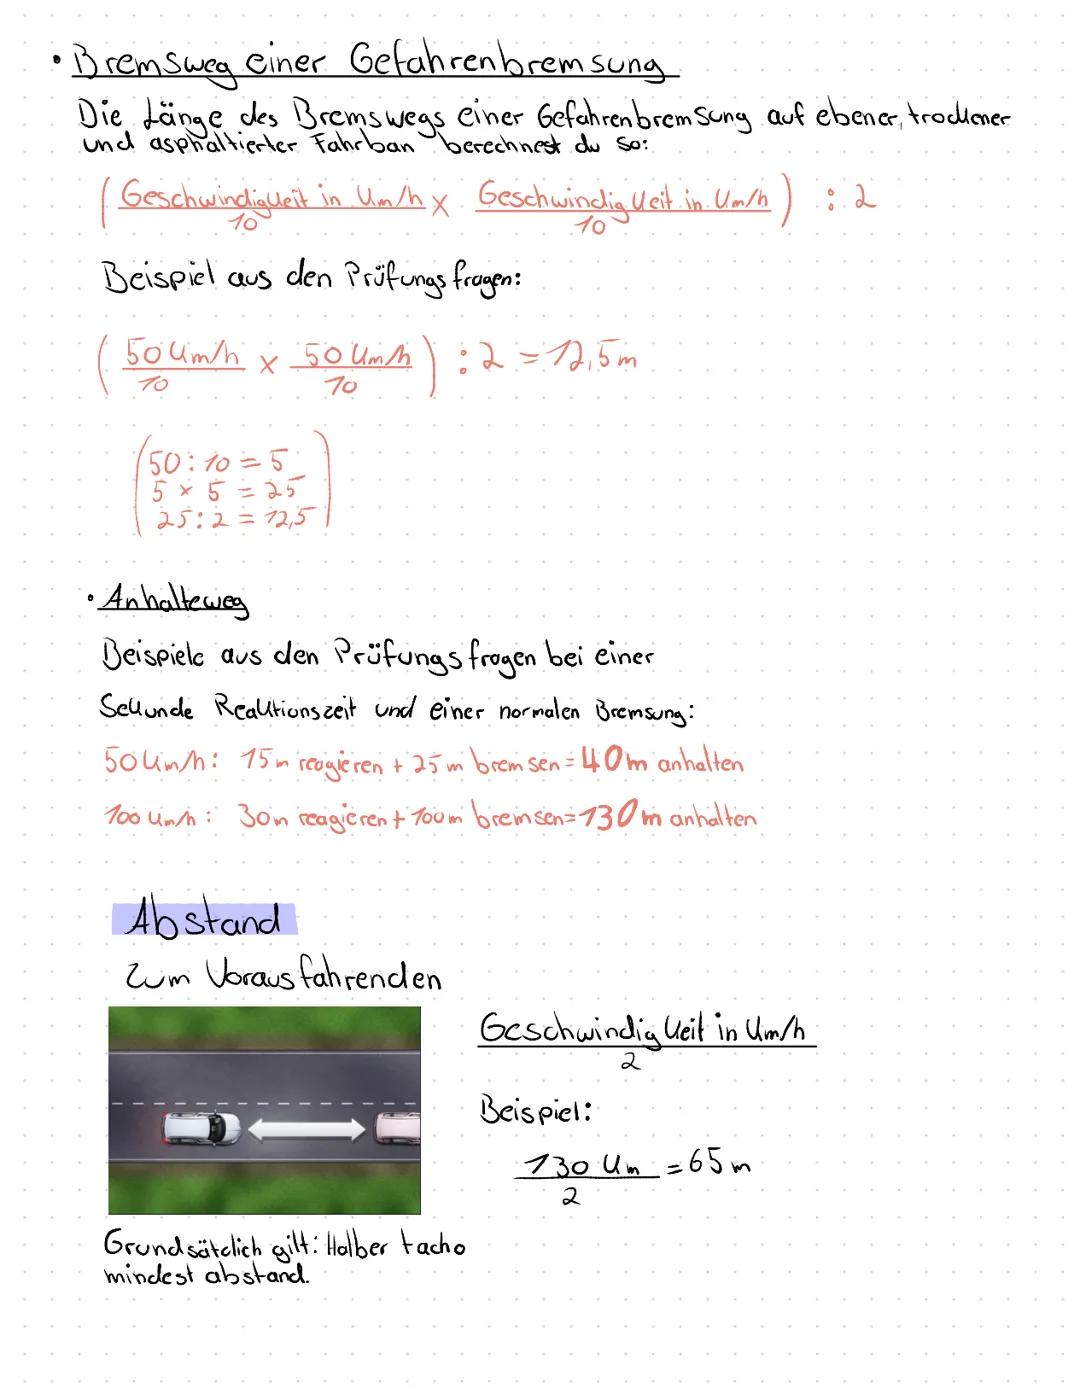 • Bremsweg einer Gefahrenbremsung
Die Länge des Bremswegs einer Gefahrenbremsung auf ebener, trockener
und asphaltierter Fahrban berechnest du so:
( Geschwindigkeit in km/h / 10 x Geschwindigkeit in km/h / 10 ) : 2
Beispiel aus den Prüfungsfragen:
( 50 km/h / 10 x 50 km/h / 10 ) : 2 = 12,5 m
( 50 : 10 = 5
5 x 5 = 25
25 : 2 = 12,5 )
• Anhalteweg
Beispiele aus den Prüfungsfragen bei einer
Sekunde Reaktionszeit und einer normalen Bremsung:
50 km/h: 15 m reagieren + 25 m bremsen = 40 m anhalten
100 km/h: 30 m reagieren + 100 m bremsen = 130 m anhalten
Abstand
Zum Vorausfahrenden
Geschwindigkeit in km/h
2
Beispiel:
130 km / 2 = 65 m
Grundsätzlich gilt: Halber tacho
mindest abstand.